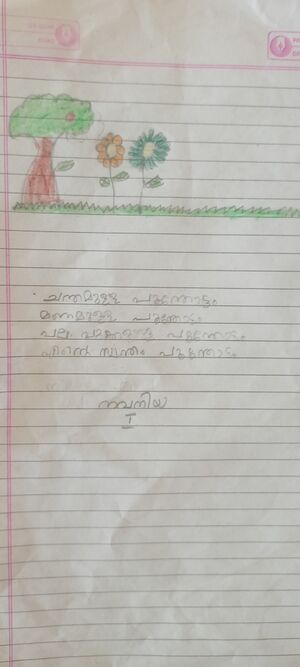 ചന്തമുള്ള പൂന്തോട്ടം
മണമുള്ള പൂന്തോട്ടം
പല പൂന്തോട്ടം
എൻ്റെ സ്വന്തം പൂന്തോട്ടം
നവനിയ
I